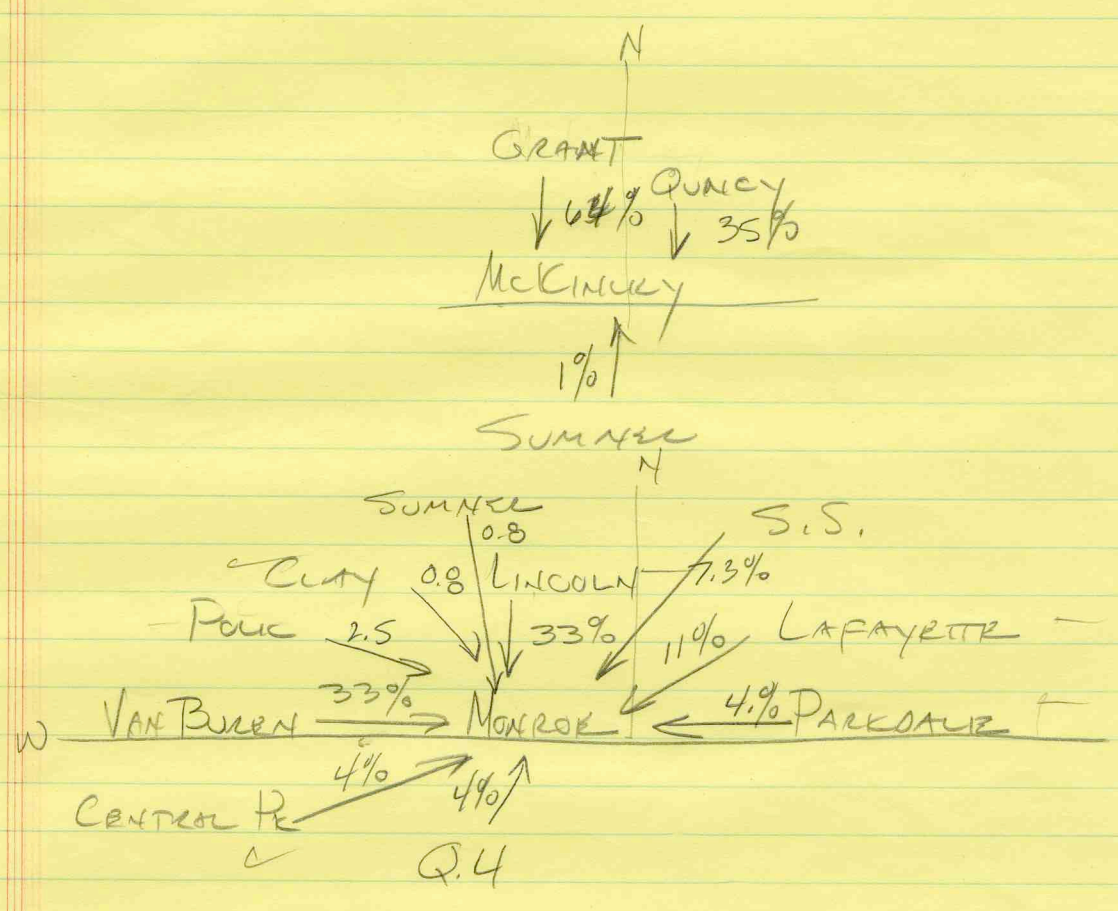 N
GRANT
64% QUNCY
35%
McKINLEY
1%
SUMNER
N
SUMNER
0.8
S.S.
CLAY 0.8 LINCOLN 7.3%
POLK 2.5 33% 11% LAFAYETTE
33%
W VAN BUREN MONROE 4.% PARKDALE
4% 4%
CENTRAL PK
Q.4